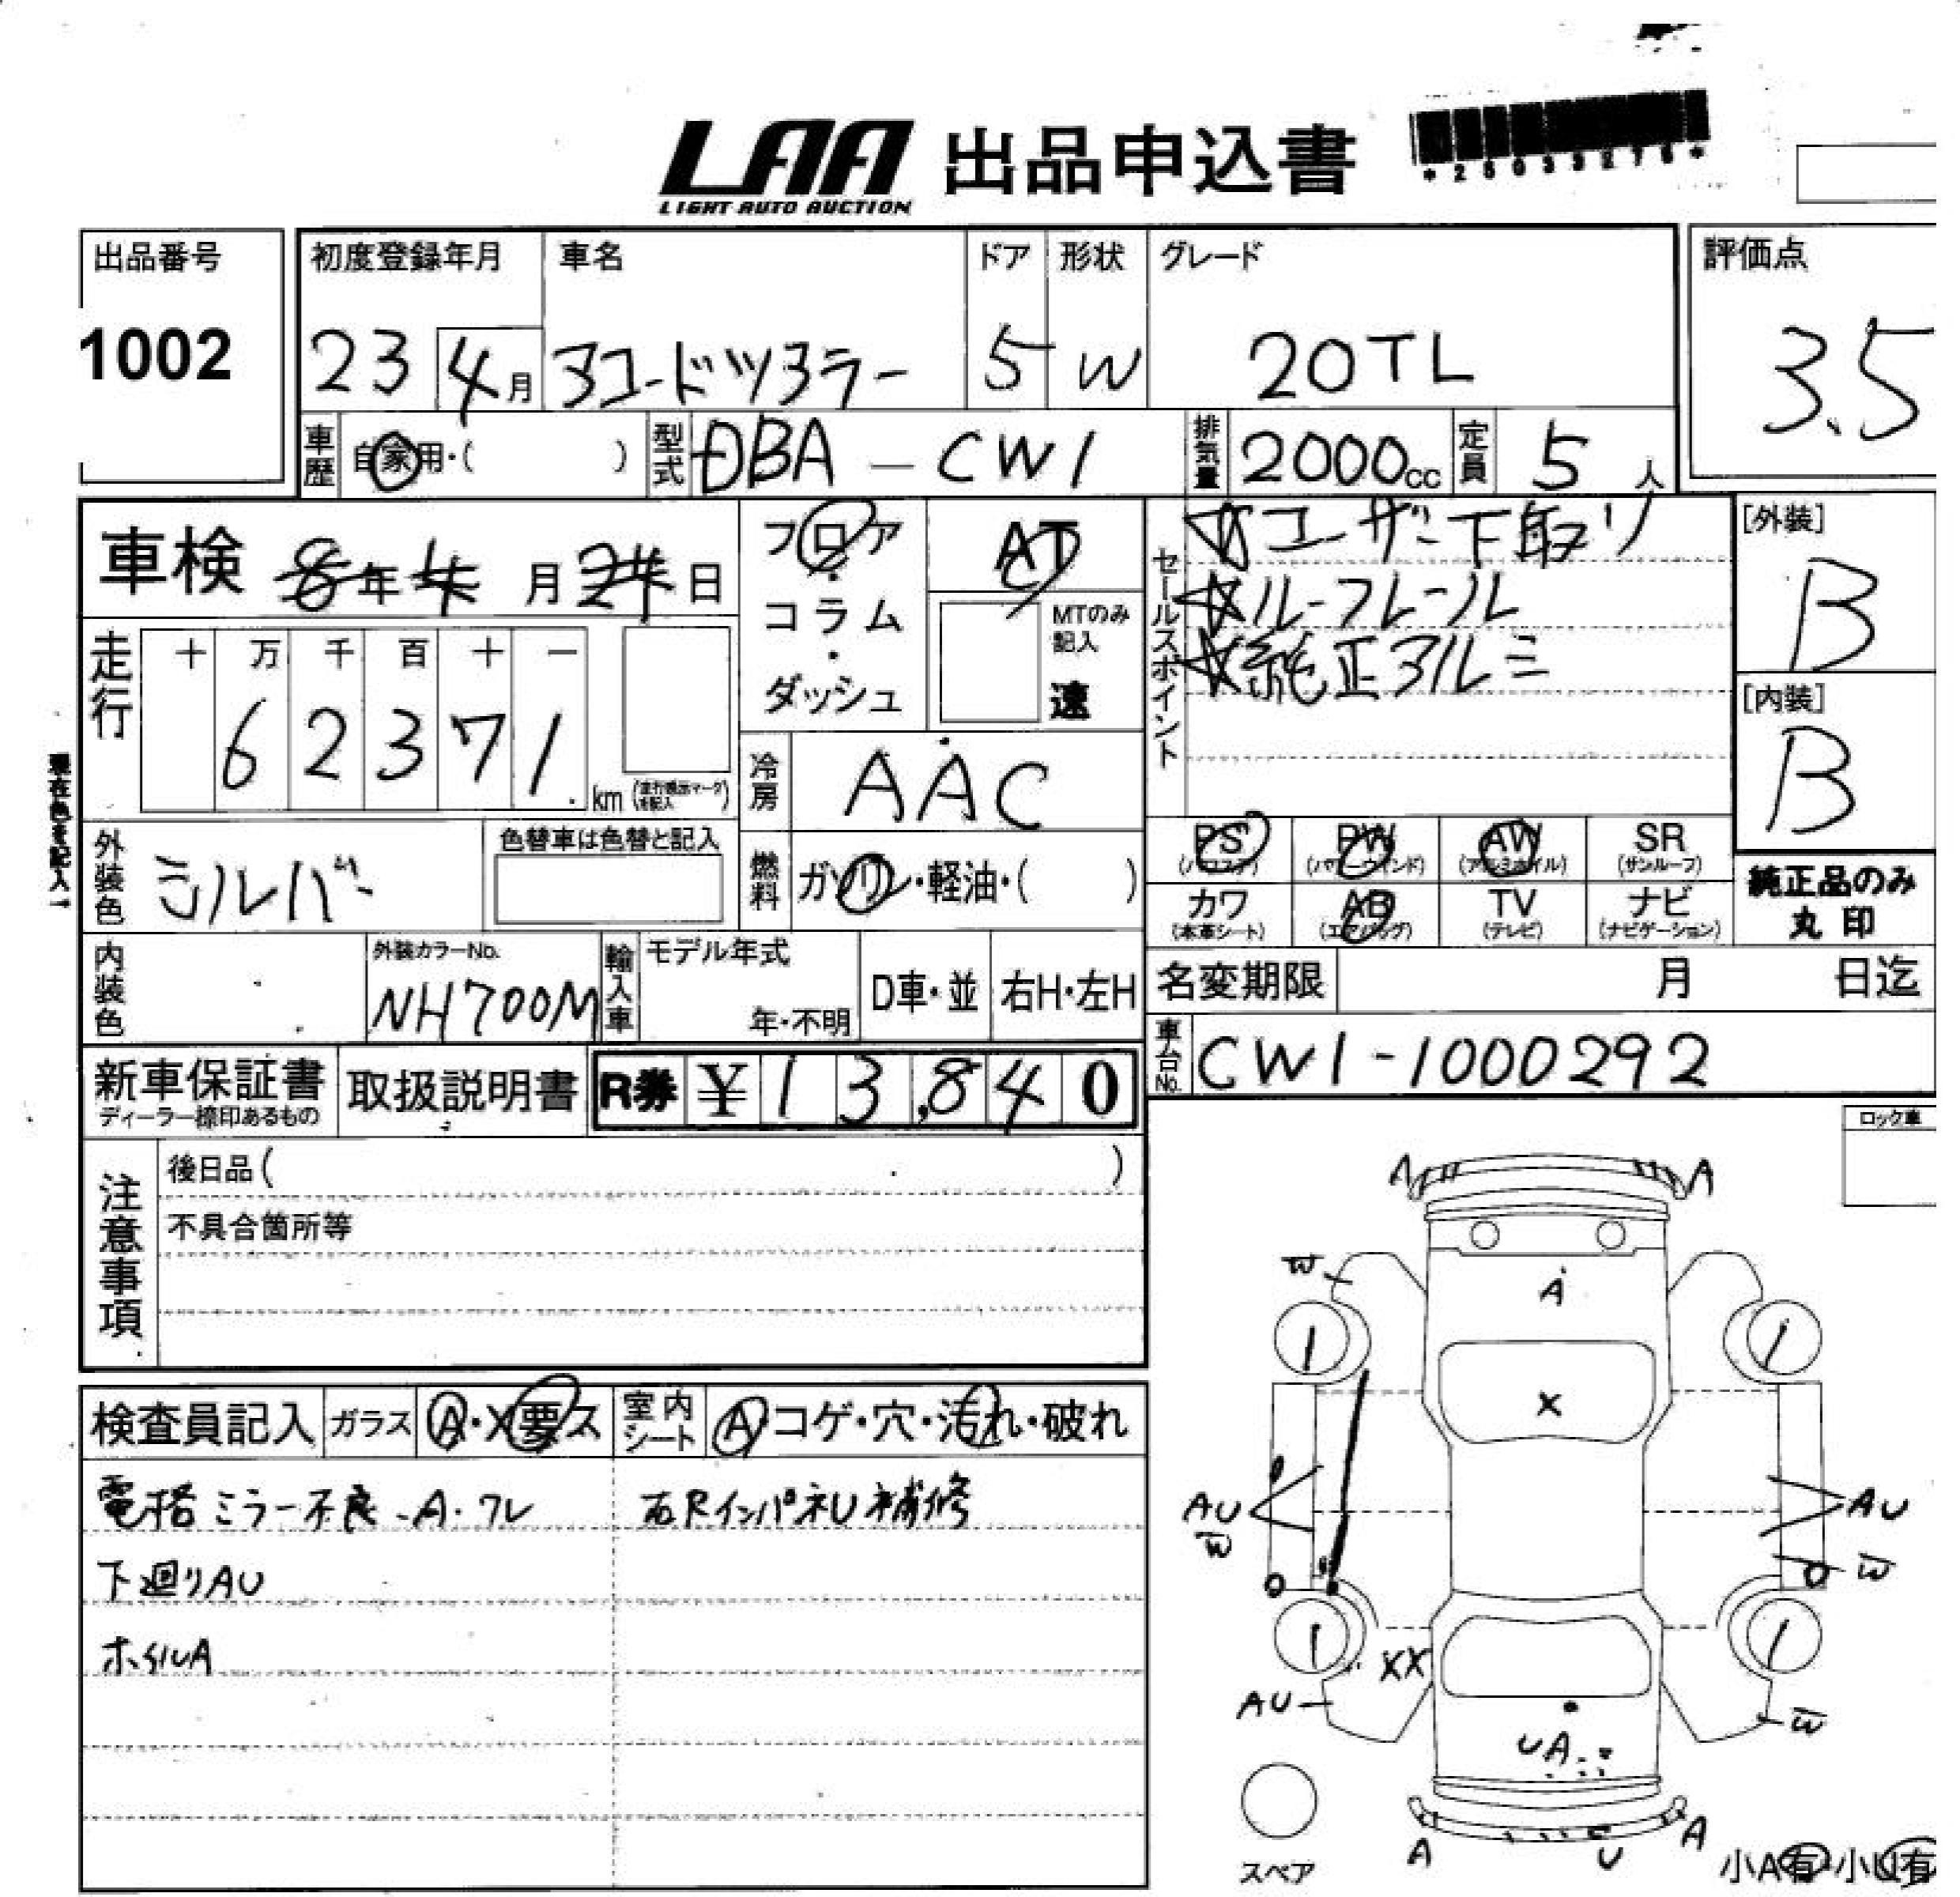 LAA 出品申込書
LIGHT AUTO AUCTION
*25033275*
出品番号
1002
初度登録年月 車名 ドア 形状 グレード 評価点
23 4月 アコードツアラー 5 W 20TL 3.5
車歴 自家用・( ) 型式 DBA-CW1 排気量 2000cc 定員 5人
車検 8年4月24日
フロア・コラム・ダッシュ
AT
MTのみ記入
速
セールスポイント
☆ユーザー下取り
☆ルーフレール
☆純正アルミ
[外装]
B
[内装]
B
走行 十 万 千 百 十 一
62371 km (走行表示マークを記入)
冷房 AAC
現在色を記入
外装色 シルバー 色替車は色替と記入
燃料 ガソリン・軽油・( )
PS (パワステ) PW (パワーウインド) AW (アルミホイル) SR (サンルーフ)
カワ (本革シート) AB (エアバッグ) TV (テレビ) ナビ (ナビゲーション)
純正品のみ
丸印
内装色 外装カラーNo. NH700M
輸入車 モデル年式 年・不明 D車・並 右H・左H
名変期限 月 日迄
車台No. CW1-1000292
新車保証書 ディーラー捺印あるもの 取扱説明書 R券 ¥13,840
ロック車
注意事項
後日品( )
不具合箇所等
検査員記入 ガラス A・X要ス 室内シート A・コゲ・穴・汚れ・破れ
電格ミラー不良 A・フレ 右Rインパネル補修
下廻りAU
ホイルA
A A
W
A
X
AU
W
AU
W
XX
AU
W
UA
A U A
スペア
小A有・小U有